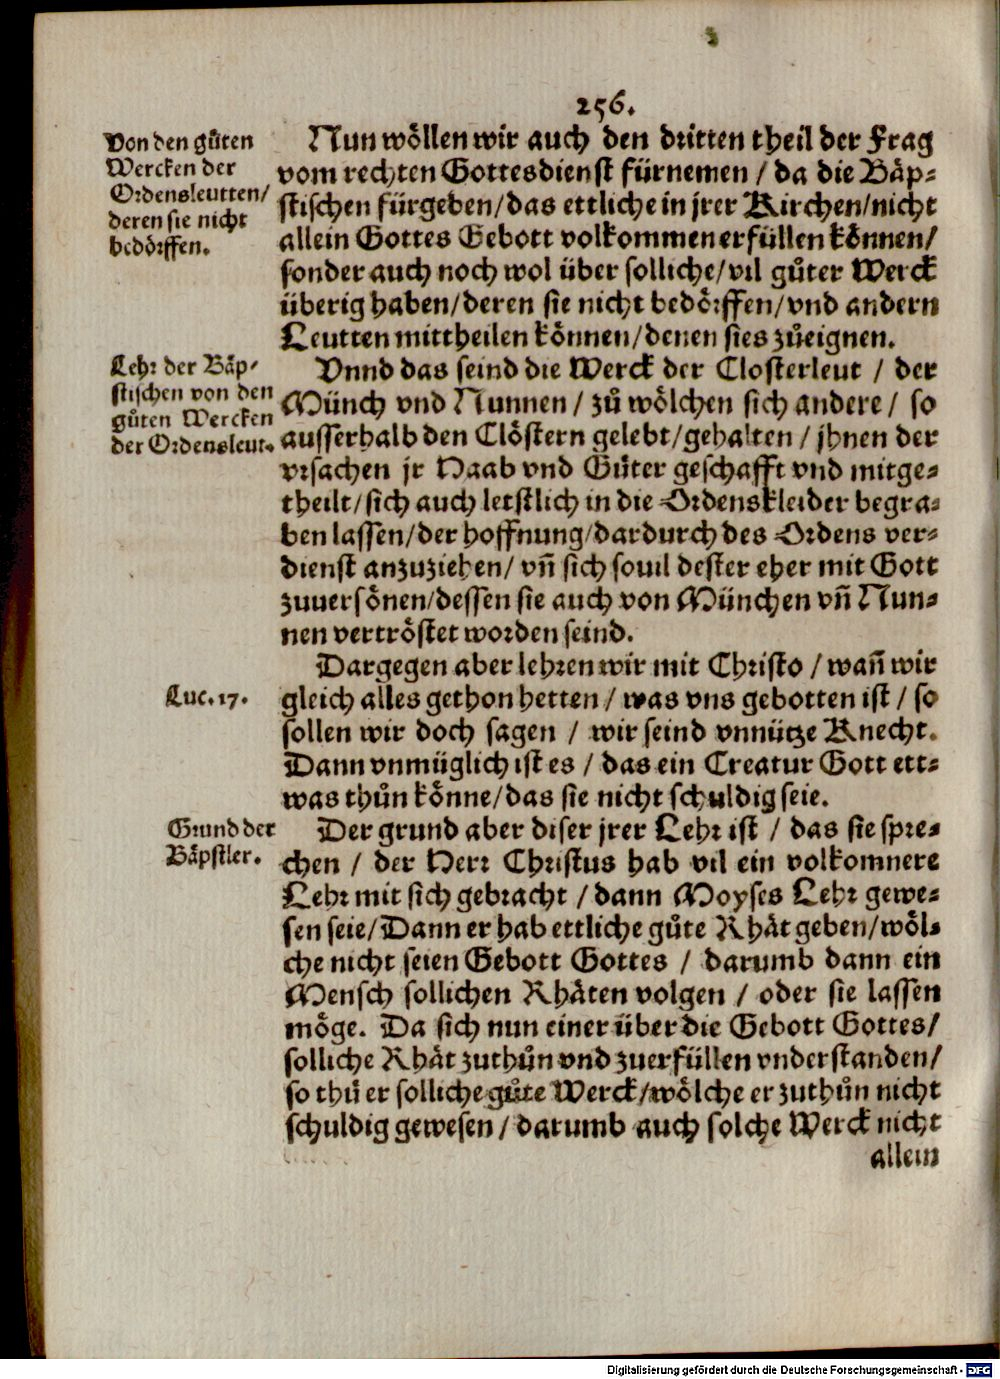 256.
Von den gůten
Wercken der
Ordensleutten/
deren sie nicht
bedörffen.
Nun wöllen wir auch den dritten theil der Frag
vom rechten Gottesdienst fürnemen / da die Bäp-
stischen fürgeben/das ettliche in jrer Kirchen/nicht
allein Gottes Gebott volkommen erfüllen können/
sonder auch noch wol über solliche/vil gůter Werck
überig haben/deren sie nicht bedörffen/vnd andern
Leutten mittheilen können/denen sies zůeignen.
Lehr der Bäp-
stischen von den
gůten Wercken
der Ordensleut.
Vnnd das seind die Werck der Closterleut / der
Münch vnd Nunnen / zů wölchen sich andere / so
ausserhalb den Clöstern gelebt/gehalten / jhnen der
vrsachen jr Haab vnd Gůter geschafft vnd mitge-
theilt/sich auch letstlich in die Ordenskleider begra-
ben lassen/der hoffnung/dardurch des Ordens ver-
dienst anzuziehen/ vn̄ sich souil dester eher mit Gott
zuuersönen/dessen sie auch von München vn̄ Nun-
nen vertröstet worden seind.
Dargegen aber lehren wir mit Christo / wan̄ wir
Luc. 17.
gleich alles gethon hetten / was vns gebotten ist / so
sollen wir doch sagen / wir seind vnnütze Knecht.
Dann vnmüglich ist es / das ein Creatur Gott ett-
was thůn könne/das sie nicht schuldig seie.
Grund der
Bäpstler.
Der grund aber diser jrer Lehr ist / das sie spre-
chen / der Herr Christus hab vil ein volkomnere
Lehr mit sich gebracht / dann Moyses Lehr gewe-
sen seie/Dann er hab ettliche gůte Rhät geben/wöl-
che nicht seien Gebott Gottes / darumb dann ein
Mensch sollichen Rhäten volgen / oder sie lassen
möge. Da sich nun einer über die Gebott Gottes/
solliche Rhät zuthůn vnd zuerfüllen vnderstanden/
so thů er solliche gůte Werck/wölche er zuthůn nicht
schuldig gewesen / darumb auch solche Werck nicht
allein
Digitalisierung gefördert durch die Deutsche Forschungsgemeinschaft - DFG